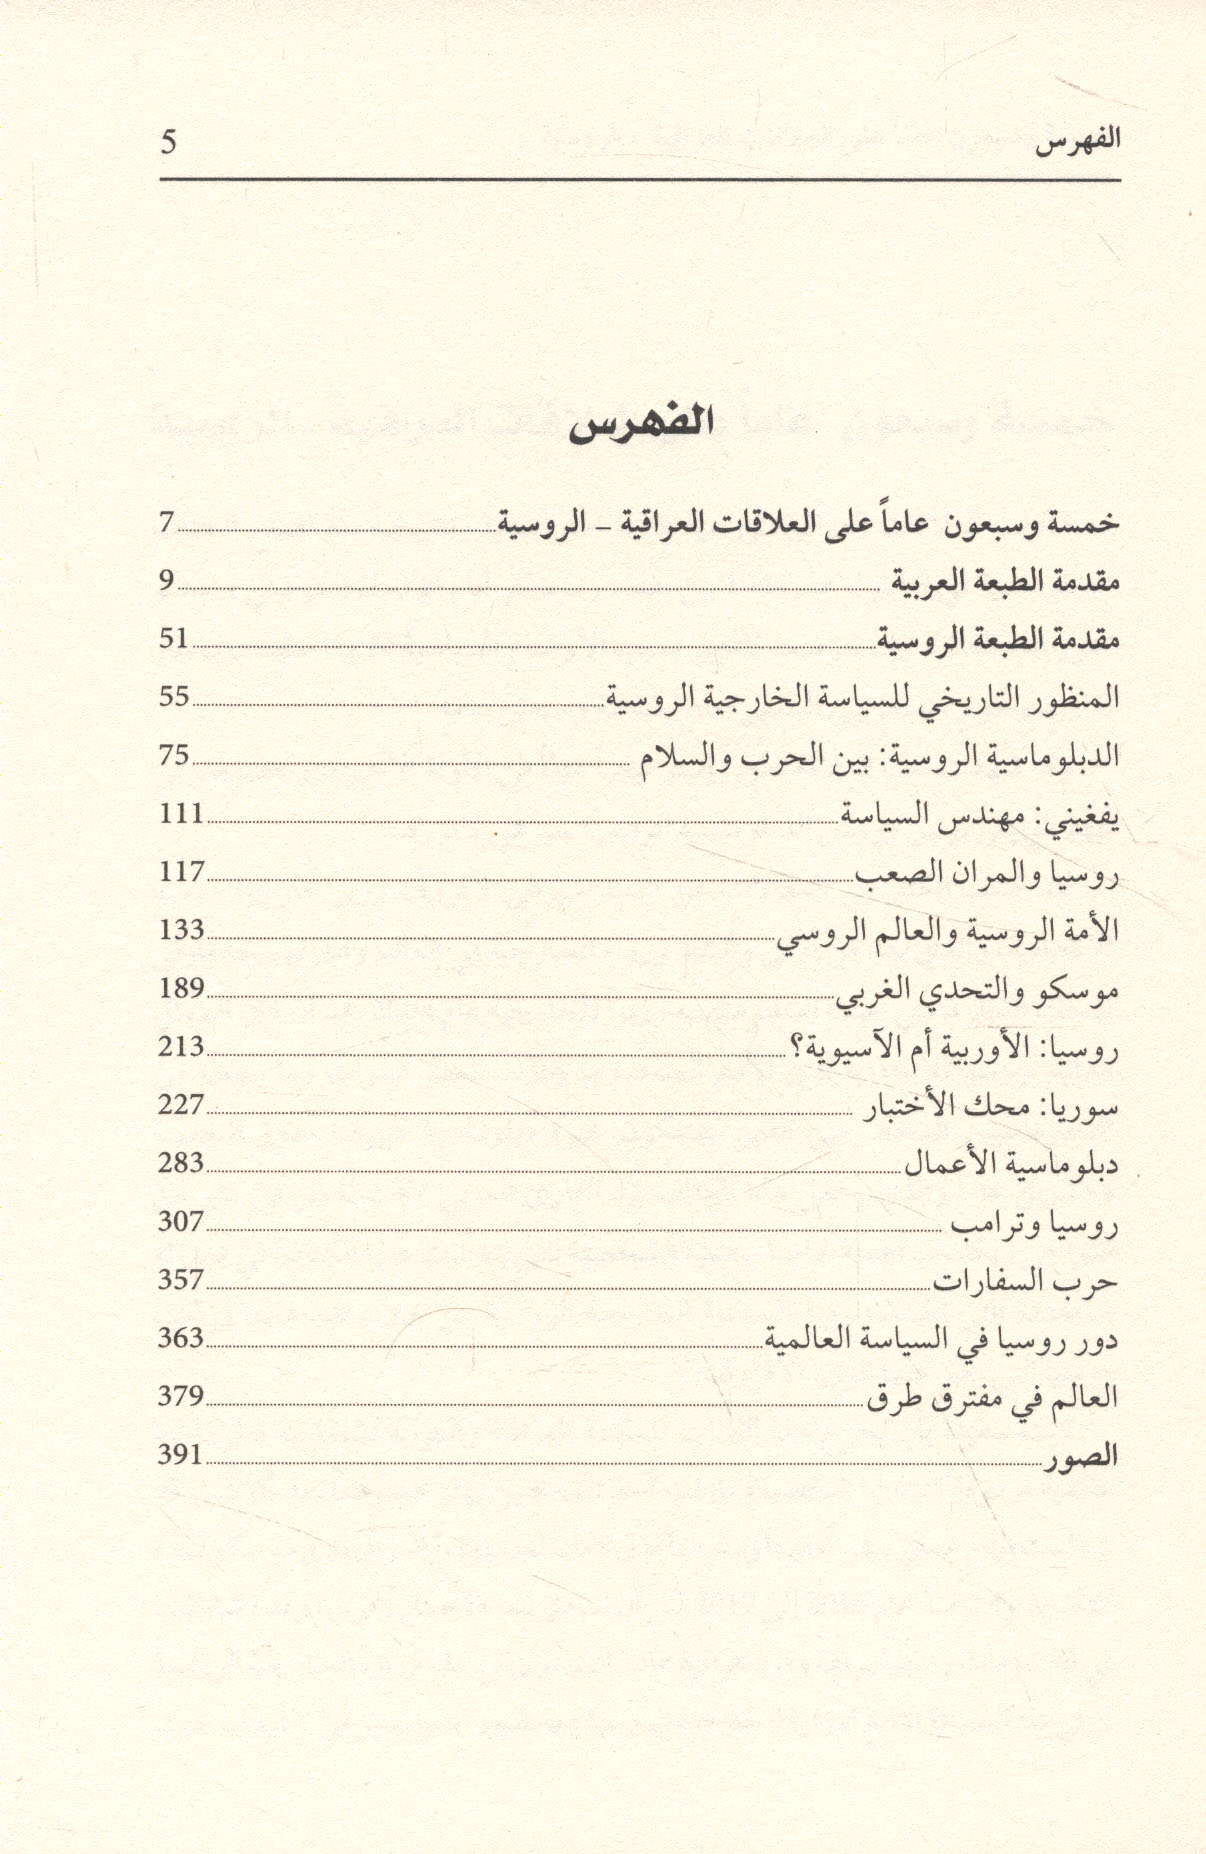 الفهرس 5
الفهرس
خمسة وسبعون عاماً على العلاقات العراقية – الروسية 7
مقدمة الطبعة العربية 9
مقدمة الطبعة الروسية 51
المنظور التاريخي للسياسة الخارجية الروسية 55
الدبلوماسية الروسية: بين الحرب والسلام 75
يفغيني: مهندس السياسة 111
روسيا والمران الصعب 117
الأمة الروسية والعالم الروسي 133
موسكو والتحدي الغربي 189
روسيا: الأوربية أم الآسيوية؟ 213
سوريا: محك الأختبار 227
دبلوماسية الأعمال 283
روسيا وترامب 307
حرب السفارات 357
دور روسيا في السياسة العالمية 363
العالم في مفترق طرق 379
الصور 391